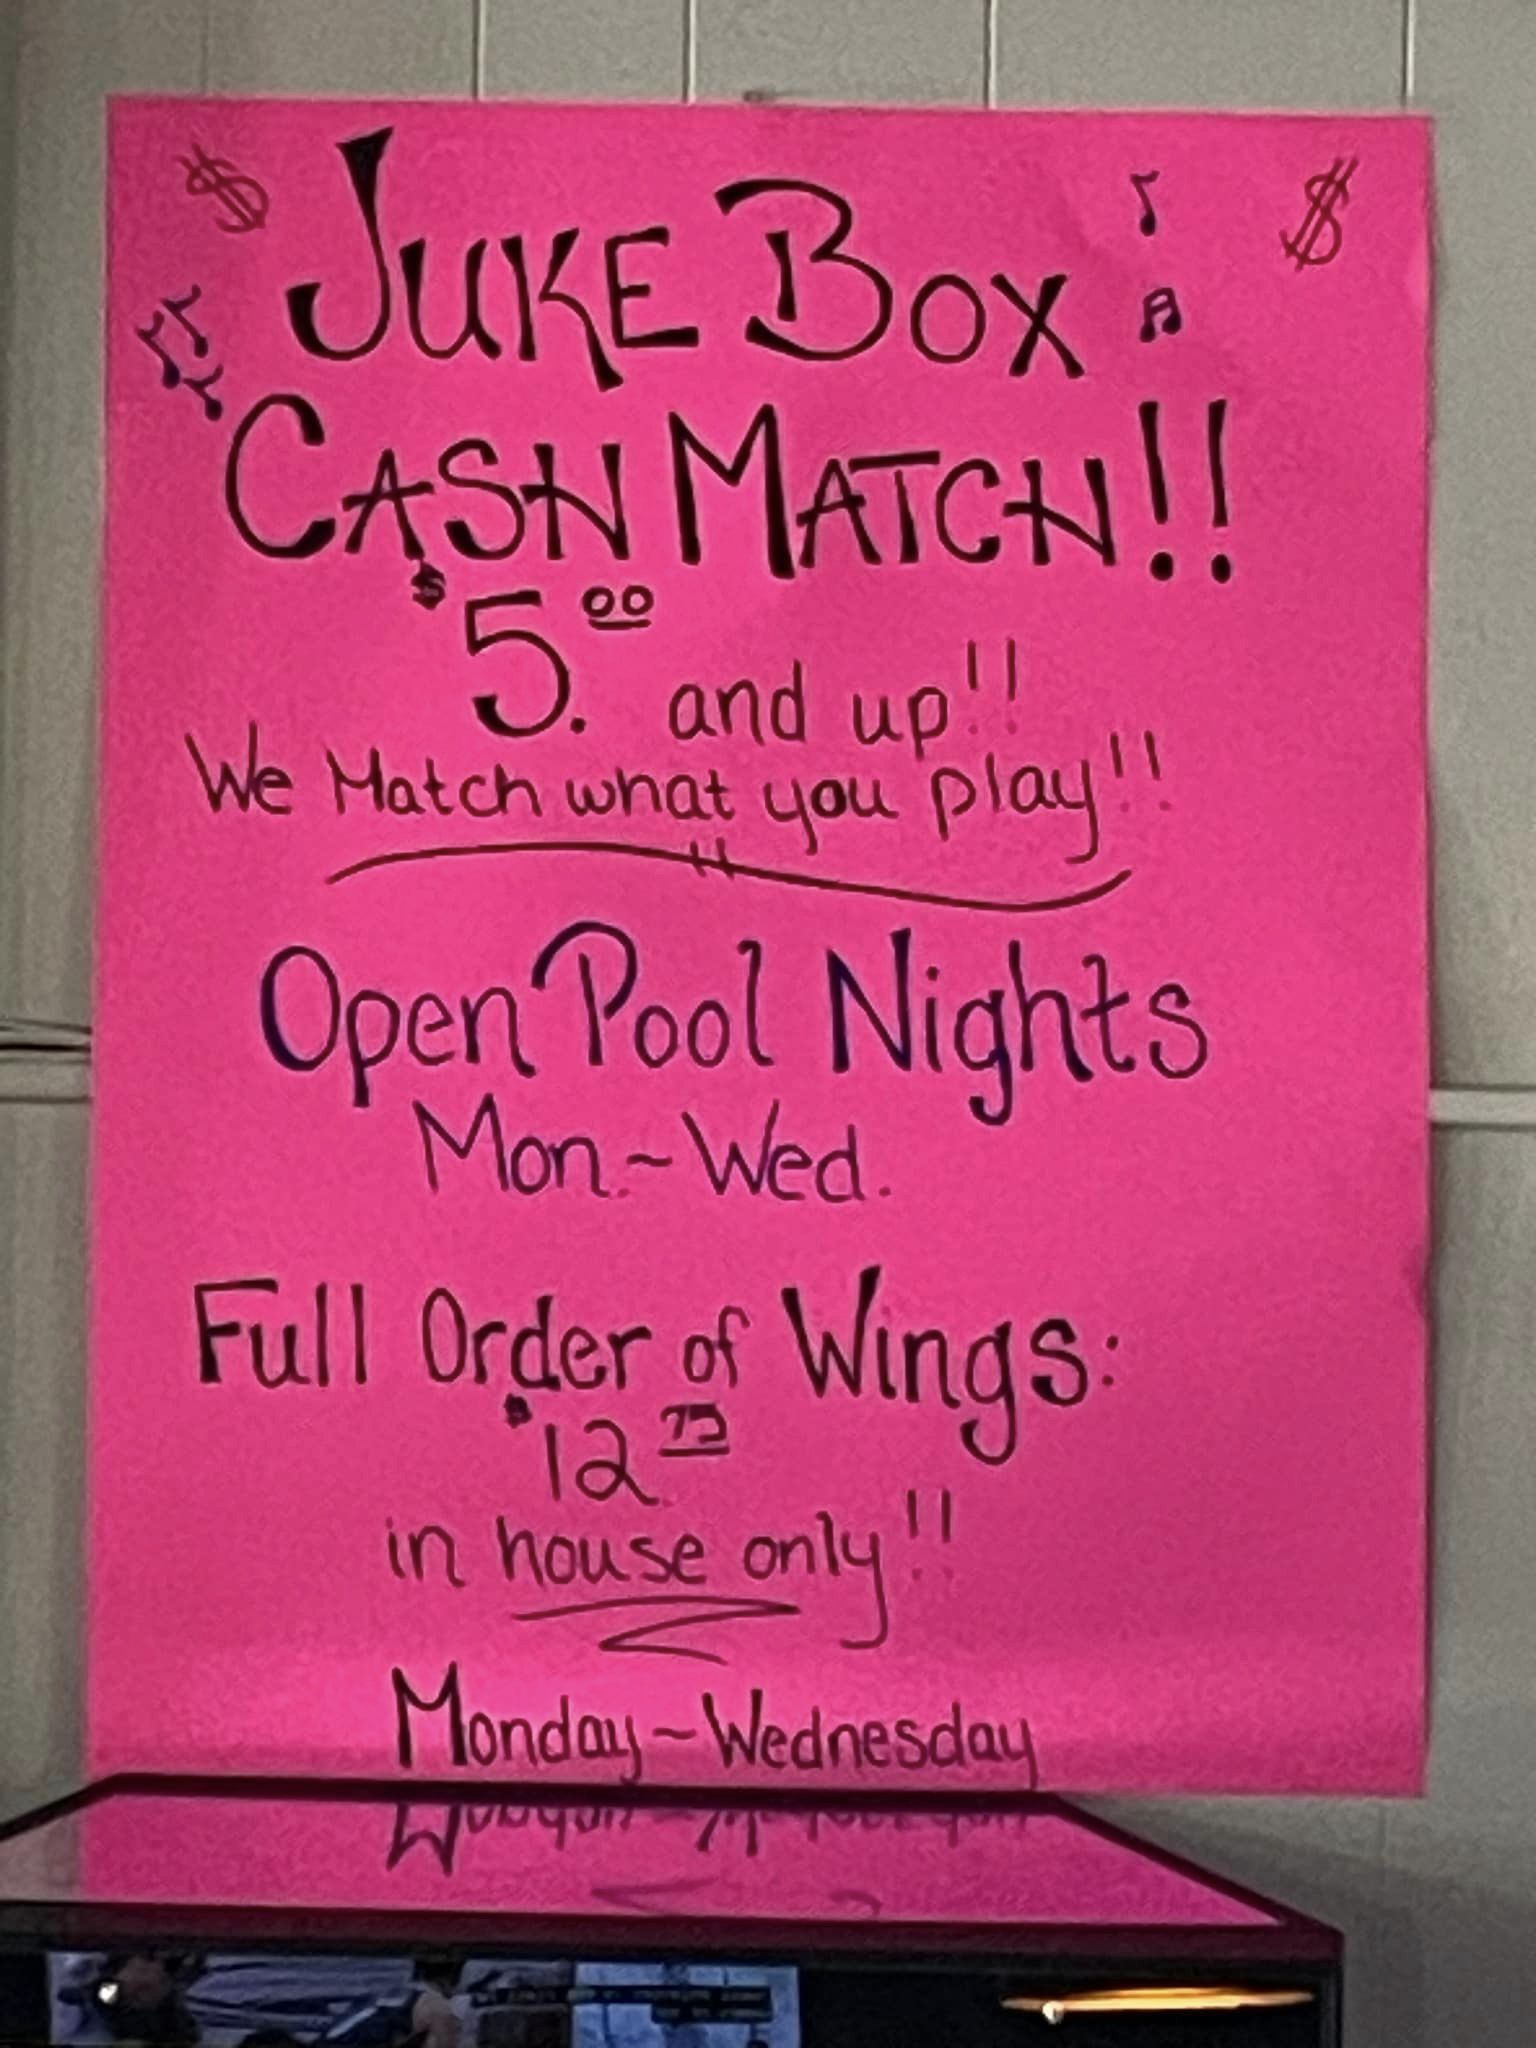 JUKE BOX
CASH MATCH!!
$5.00 and up!!
We Match what you play!!
Open Pool Nights
Mon.~Wed.
Full Order of Wings:
$12.75
in house only!!
Monday~Wednesday